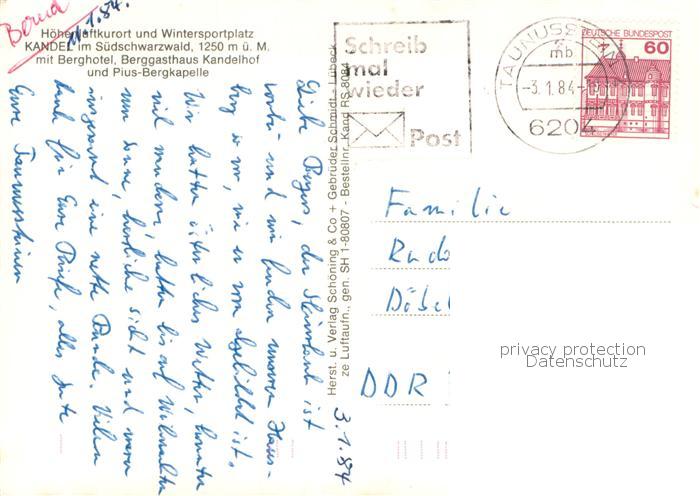 Bernd
11.1.84.
Höhenluftkurort und Wintersportplatz
KANDEL im Südschwarzwald, 1250 m ü. M.
mit Berghotel, Berggasthaus Kandelhof
und Pius-Bergkapelle
Schreib
mal
wieder
Post
TAUNUSSTEIN
mb
-3.1.84-
6204
DEUTSCHE BUNDESPOST
60
Herst. u. Verlag Schöning & Co + Gebrüder Schmidt - Lübeck
ze Luftaufn., gen. SH 1-80807 - Bestellnr. Kand RS 8084
Liebe, der ist
vorbei und wir fanden unseren Haus-
berg so vor, wie er vorn abgebildet ist.
Wir hatten Wetter, konnten
viel wandern, hatten bis auf Weihnachten
nur Sonne, herrliche Sicht und waren
insgesamt eine nette Runde. Vielen
Dank für Eure Briefe, alles Gute
Eure Taunussteiner
3.1.84
Familie
Rudo
Döbel
DDR
privacy protection
Datenschutz